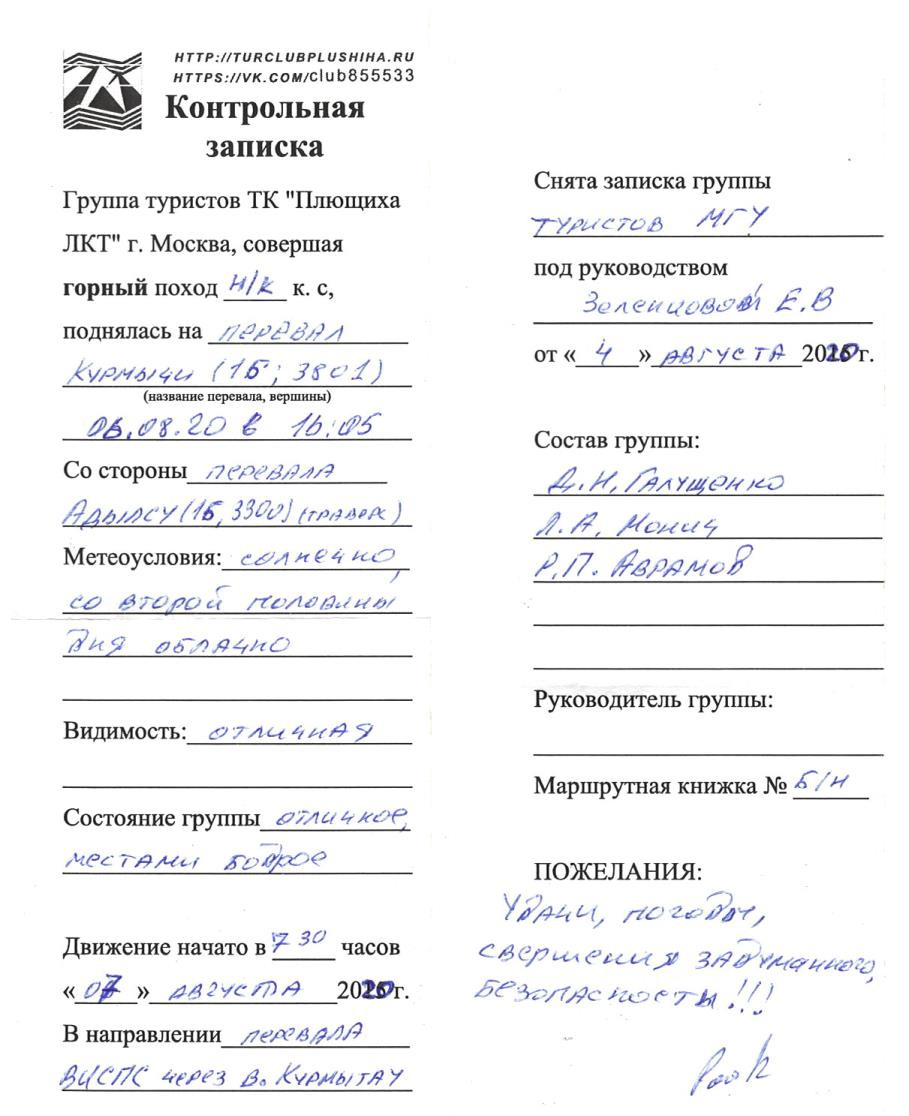 HTTP://TURCLUBPLUSHIHA.RU
HTTPS://VK.COM/club855533
Контрольная
записка
Группа туристов ТК "Плющиха
ЛКТ" г. Москва, совершая
горный поход Н/К к. с,
поднялась на перевал
Курмычи (1Б; 3801)
(название перевала, вершины)
06.08.20 в 16:05
Со стороны перевала
Адылсу (1Б, 3300) (траверс)
Метеоусловия: солнечно,
со второй половины
дня облачно
Видимость: отличная
Состояние группы отличное,
местами бодрое
Движение начато в 7 30 часов
«07» августа 2020г.
В направлении перевала
ВЦСПС через В. Курмытау
Снята записка группы
туристов МГУ
под руководством
Зеленцовой Е.В
от «4» августа 2020 г.
Состав группы:
Д.Н. Галущенко
Л.А. Монич
Р.П. Аврамов
Руководитель группы:
Маршрутная книжка № Б/Н
ПОЖЕЛАНИЯ:
Удачи, погоды,
свершения задуманного,
безопасности!!!